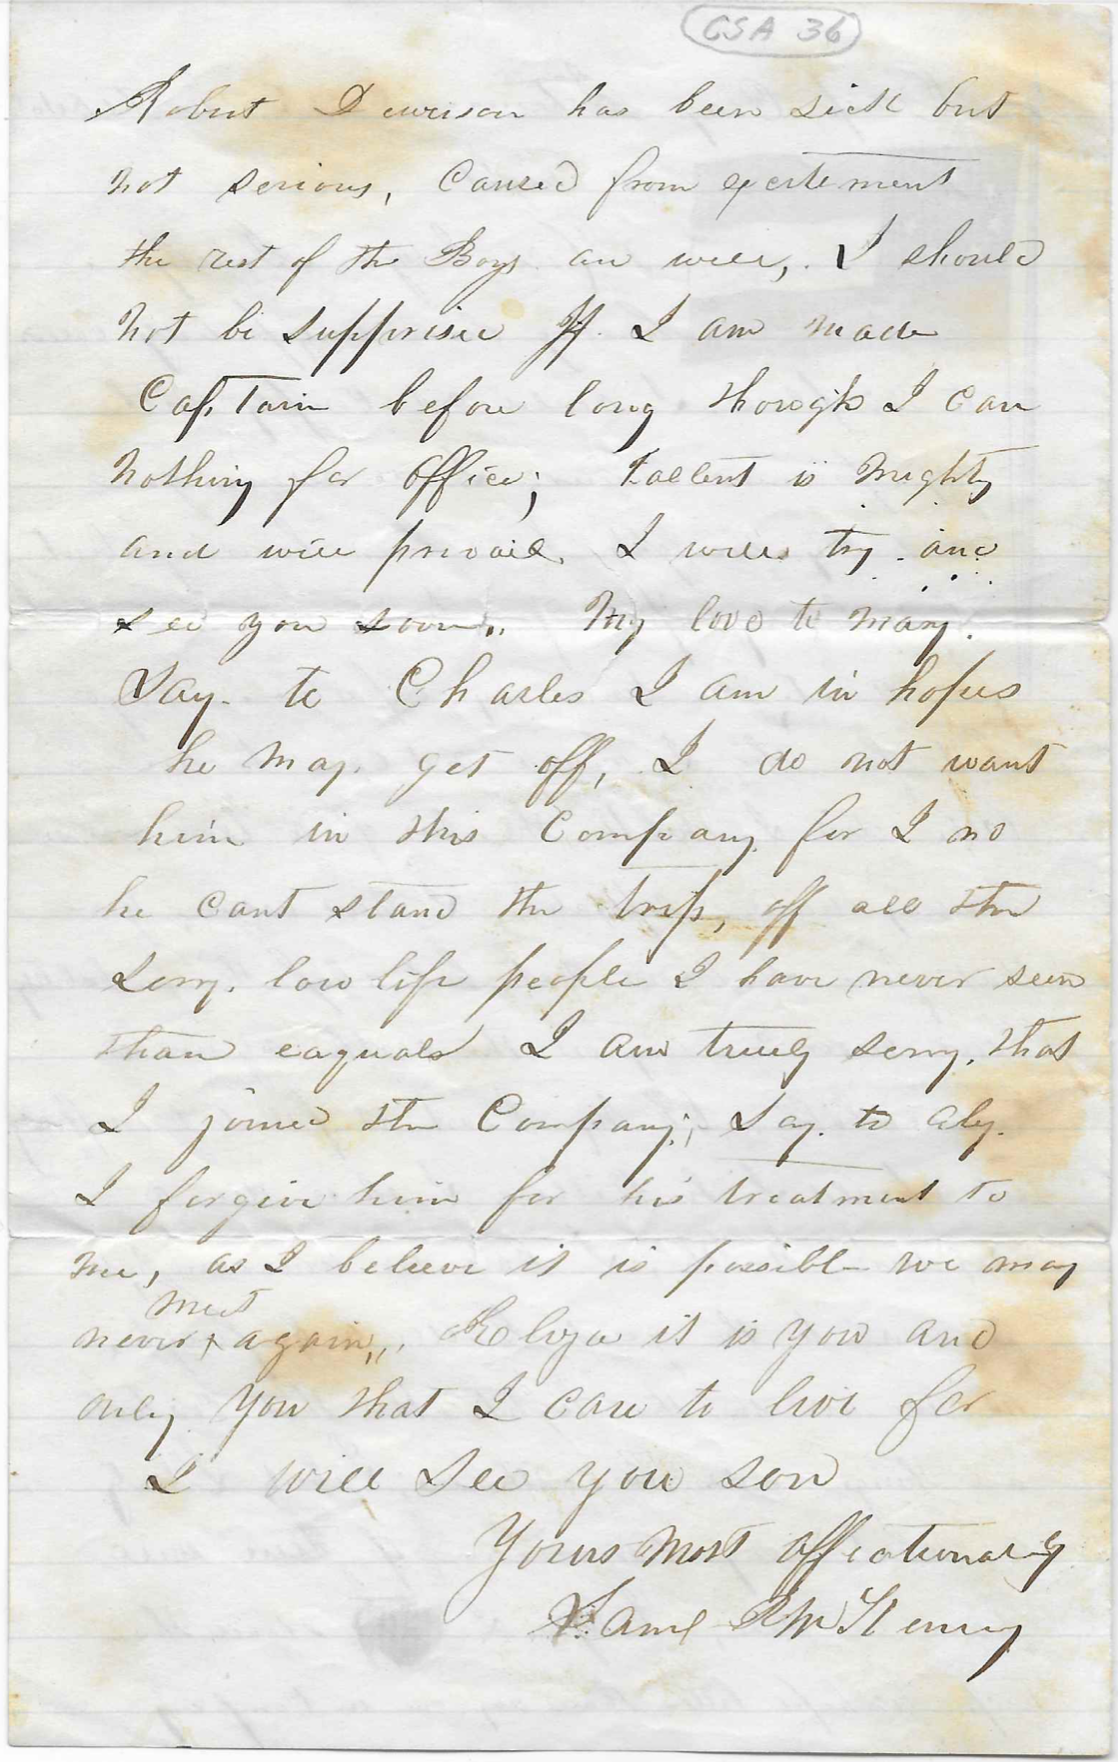 CSA 36
Robert Dewison has been sick but
not serious, Caused from excitement
the rest of the Boys are well, I should
not be supprised If I am made
Captain before long though I care
nothing for office; tallent is mighty
and will prevail, I will try and
see you soon,, My love to Mary.
Say to Charles I am in hopes
he may get off, I do not want
him in this Company for I no
he cant stand the trip, off all the
sorry low life people I have never seen
thare eaquals I am truely sorry, that
I joined the Company; Say to Aly.
I forgive him for his treatment to
me, as I believe it is possible we may
meet
never x again,,, Eliza it is you and
only you that I care to live for
I will see you son
Yours most affectionately
Saml McHenry